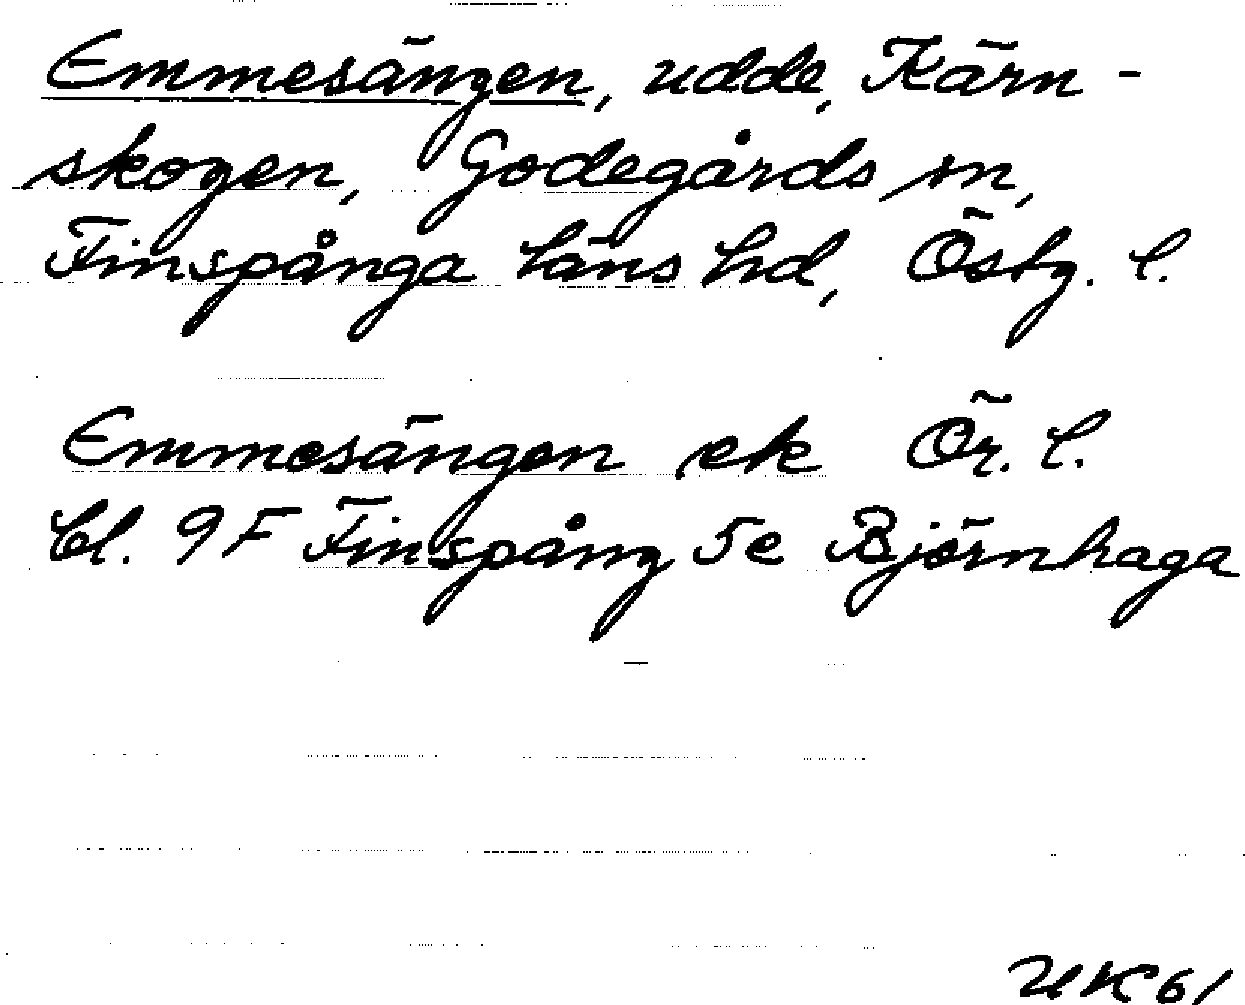 Emmesängen, udde, Kärn-
skogen, Godegårds sn,
Finspånga läns hd, Östg. l.
Emmesängen ek Ör. l.
bl. 9F Finspång 5e Björnhaga
UK61